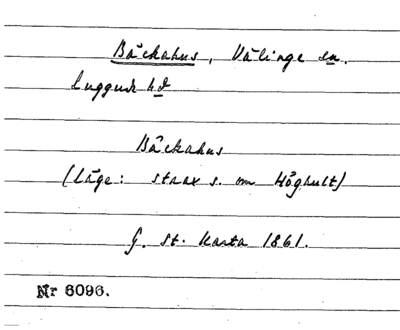 Bäckahus, Välinge sn.
Luggude hd
Bäckahus
(Läge: strax s. om Höghult)
G. st. karta 1861.
Nr 6096.